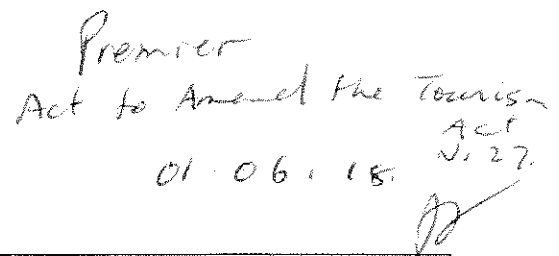 Premier
Act to Amend the Tourism
Act
N. 27.
01.06.18.